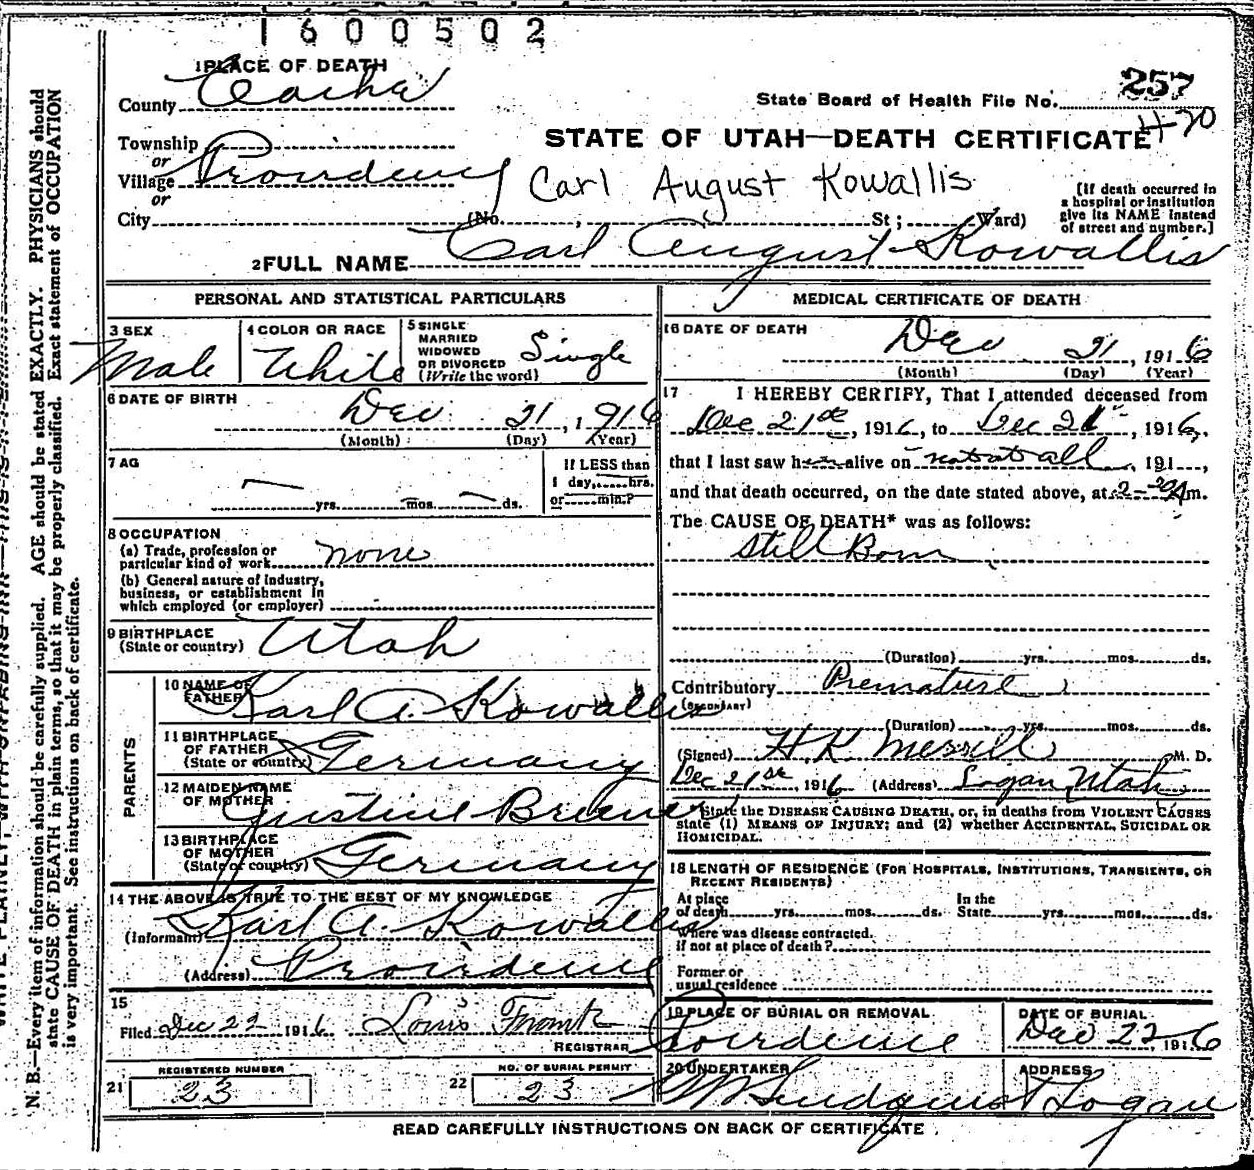 1600502
1 PLACE OF DEATH
County Cache
257
State Board of Health File No.
470
Township
or
Village Providence
or
City (No. , St; Ward)
STATE OF UTAH—DEATH CERTIFICATE
Carl August Kowallis
[If death occurred in
a hospital or institution
give its NAME instead
of street and number.]
2 FULL NAME Carl August Kowallis
PERSONAL AND STATISTICAL PARTICULARS
3 SEX
Male
4 COLOR OR RACE
White
5 SINGLE
MARRIED
WIDOWED
OR DIVORCED
(Write the word)
Single
6 DATE OF BIRTH
Dec 21, 1916
(Month) (Day) (Year)
7 AG
yrs. mos. ds.
If LESS than
1 day, hrs.
or min.?
8 OCCUPATION
(a) Trade, profession or
particular kind of work none
(b) General nature of industry,
business, or establishment in
which employed (or employer)
9 BIRTHPLACE
(State or country) Utah
PARENTS
10 NAME OF
FATHER Karl A. Kowallis
11 BIRTHPLACE
OF FATHER
(State or country) Germany
12 MAIDEN NAME
OF MOTHER Justine
13 BIRTHPLACE
OF MOTHER
(State or country) Germany
14 THE ABOVE IS TRUE TO THE BEST OF MY KNOWLEDGE
(Informant) Karl A. Kowallis
(Address) Providence
15
Filed Dec 22 1916 Louis Frank
REGISTRAR
21 REGISTERED NUMBER
23
22 NO. OF BURIAL PERMIT
23
MEDICAL CERTIFICATE OF DEATH
16 DATE OF DEATH
Dec 21, 1916
(Month) (Day) (Year)
17 I HEREBY CERTIFY, That I attended deceased from
Dec 21st, 1916, to Dec 21, 1916,
that I last saw h alive on not at all, 191 ,
and that death occurred, on the date stated above, at 2 m.
The CAUSE OF DEATH* was as follows:
Still Born
(Duration) yrs. mos. ds.
Contributory Premature
(SECONDARY)
(Duration) yrs. mos. ds.
(Signed) H. K. Merrill M. D.
Dec 21st, 1916 (Address) Logan Utah
State the DISEASE CAUSING DEATH, or, in deaths from VIOLENT CAUSES
state (1) MEANS OF INJURY; and (2) whether ACCIDENTAL, SUICIDAL OR
HOMICIDAL.
18 LENGTH OF RESIDENCE (FOR HOSPITALS, INSTITUTIONS, TRANSIENTS, OR
RECENT RESIDENTS)
At place
of death yrs. mos. ds.
In the
State yrs. mos. ds.
Where was disease contracted.
if not at place of death?
Former or
usual residence
19 PLACE OF BURIAL OR REMOVAL
Providence
DATE OF BURIAL
Dec 22, 1916
20 UNDERTAKER
Lindquist
ADDRESS
Logan
READ CAREFULLY INSTRUCTIONS ON BACK OF CERTIFICATE.
N. B.—Every item of information should be carefully supplied. AGE should be stated EXACTLY. PHYSICIANS should
state CAUSE OF DEATH in plain terms, so that it may be properly classified. Exact statement of OCCUPATION
is very important. See instructions on back of certificate.